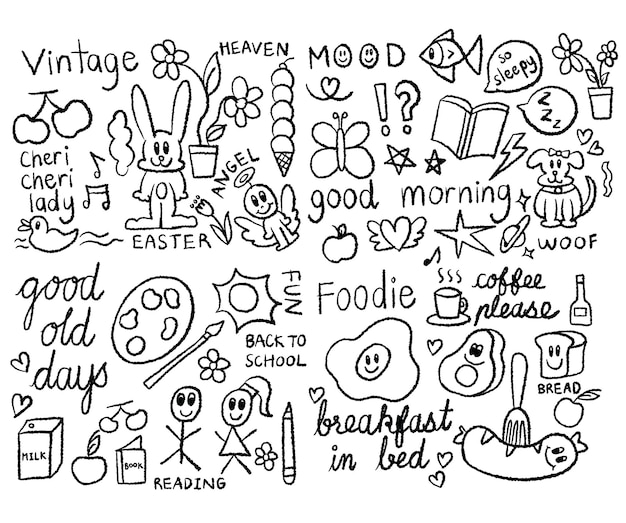 Vintage
HEAVEN
cheri
cheri
lady
ANGEL
EASTER
MOOD
so
sleepy
z z z
! ?
good morning
WOOF
good
old
days
FUN
BACK TO
SCHOOL
MILK
BOOK
READING
Foodie
coffee
please
BREAD
breakfast
in bed